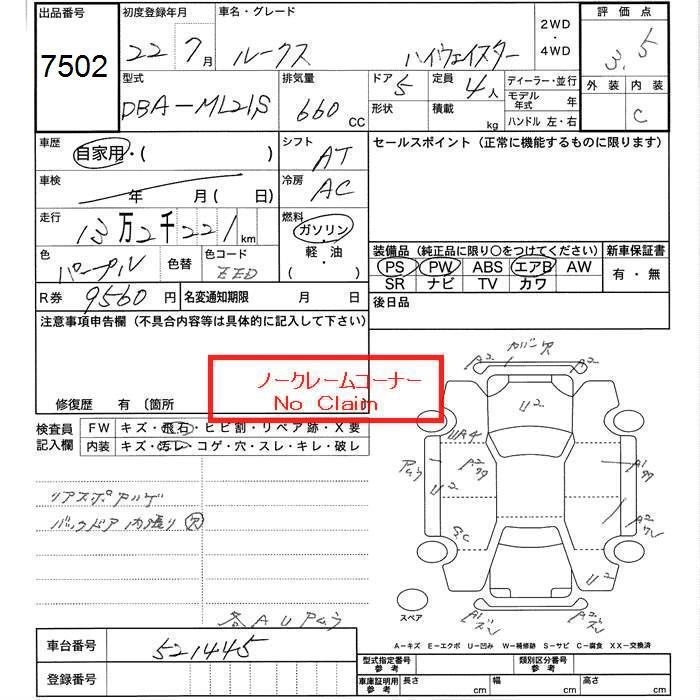 出品番号 初度登録年月 車名・グレード 2WD ・ 4WD 評価点
7502 22 7月 ルークス ハイウェイスター 3.5
型式 排気量 ドア 5 定員 4人 ディーラー・並行 外装 内装
DBA-ML21S 660 CC 形状 積載 kg モデル年式 年 C
ハンドル 左・右
車歴 自家用・( ) シフト AT セールスポイント（正常に機能するものに限ります）
車検 年 月(日) 冷房 AC
走行 13万2千221 km 燃料 ガソリン・軽・油 ( )
色 パープル 色替 色コード 装備品（純正品に限り○をつけてください） 新車保証書
PS PW ABS エアB AW 有・無
SR ナビ TV カワ
R券 9560円 名変通知期限 月 日 後日品
注意事項申告欄（不具合内容等は具体的に記入して下さい）
ノークレームコーナー
No Claim
修復歴 有 〔箇所
検査員記入欄 FW キズ・飛石・ヒビ割・リペア跡・X要
内装 キズ・汚レ・コゲ・穴・スレ・キレ・破レ
カバン穴
A2
A2
U2
UA4
A2
U2
A2
U2
リアスポ
バックドア内張り穴
各AU
スペア
A-キズ E-エクボ U-凹み W-補修跡 S-サビ C-腐食 XX-交換済
車台番号 521445
登録番号
型式指定番号 参考 類別区分番号 参考
車庫証明用 参考 長さ cm 幅 cm 高さ cm